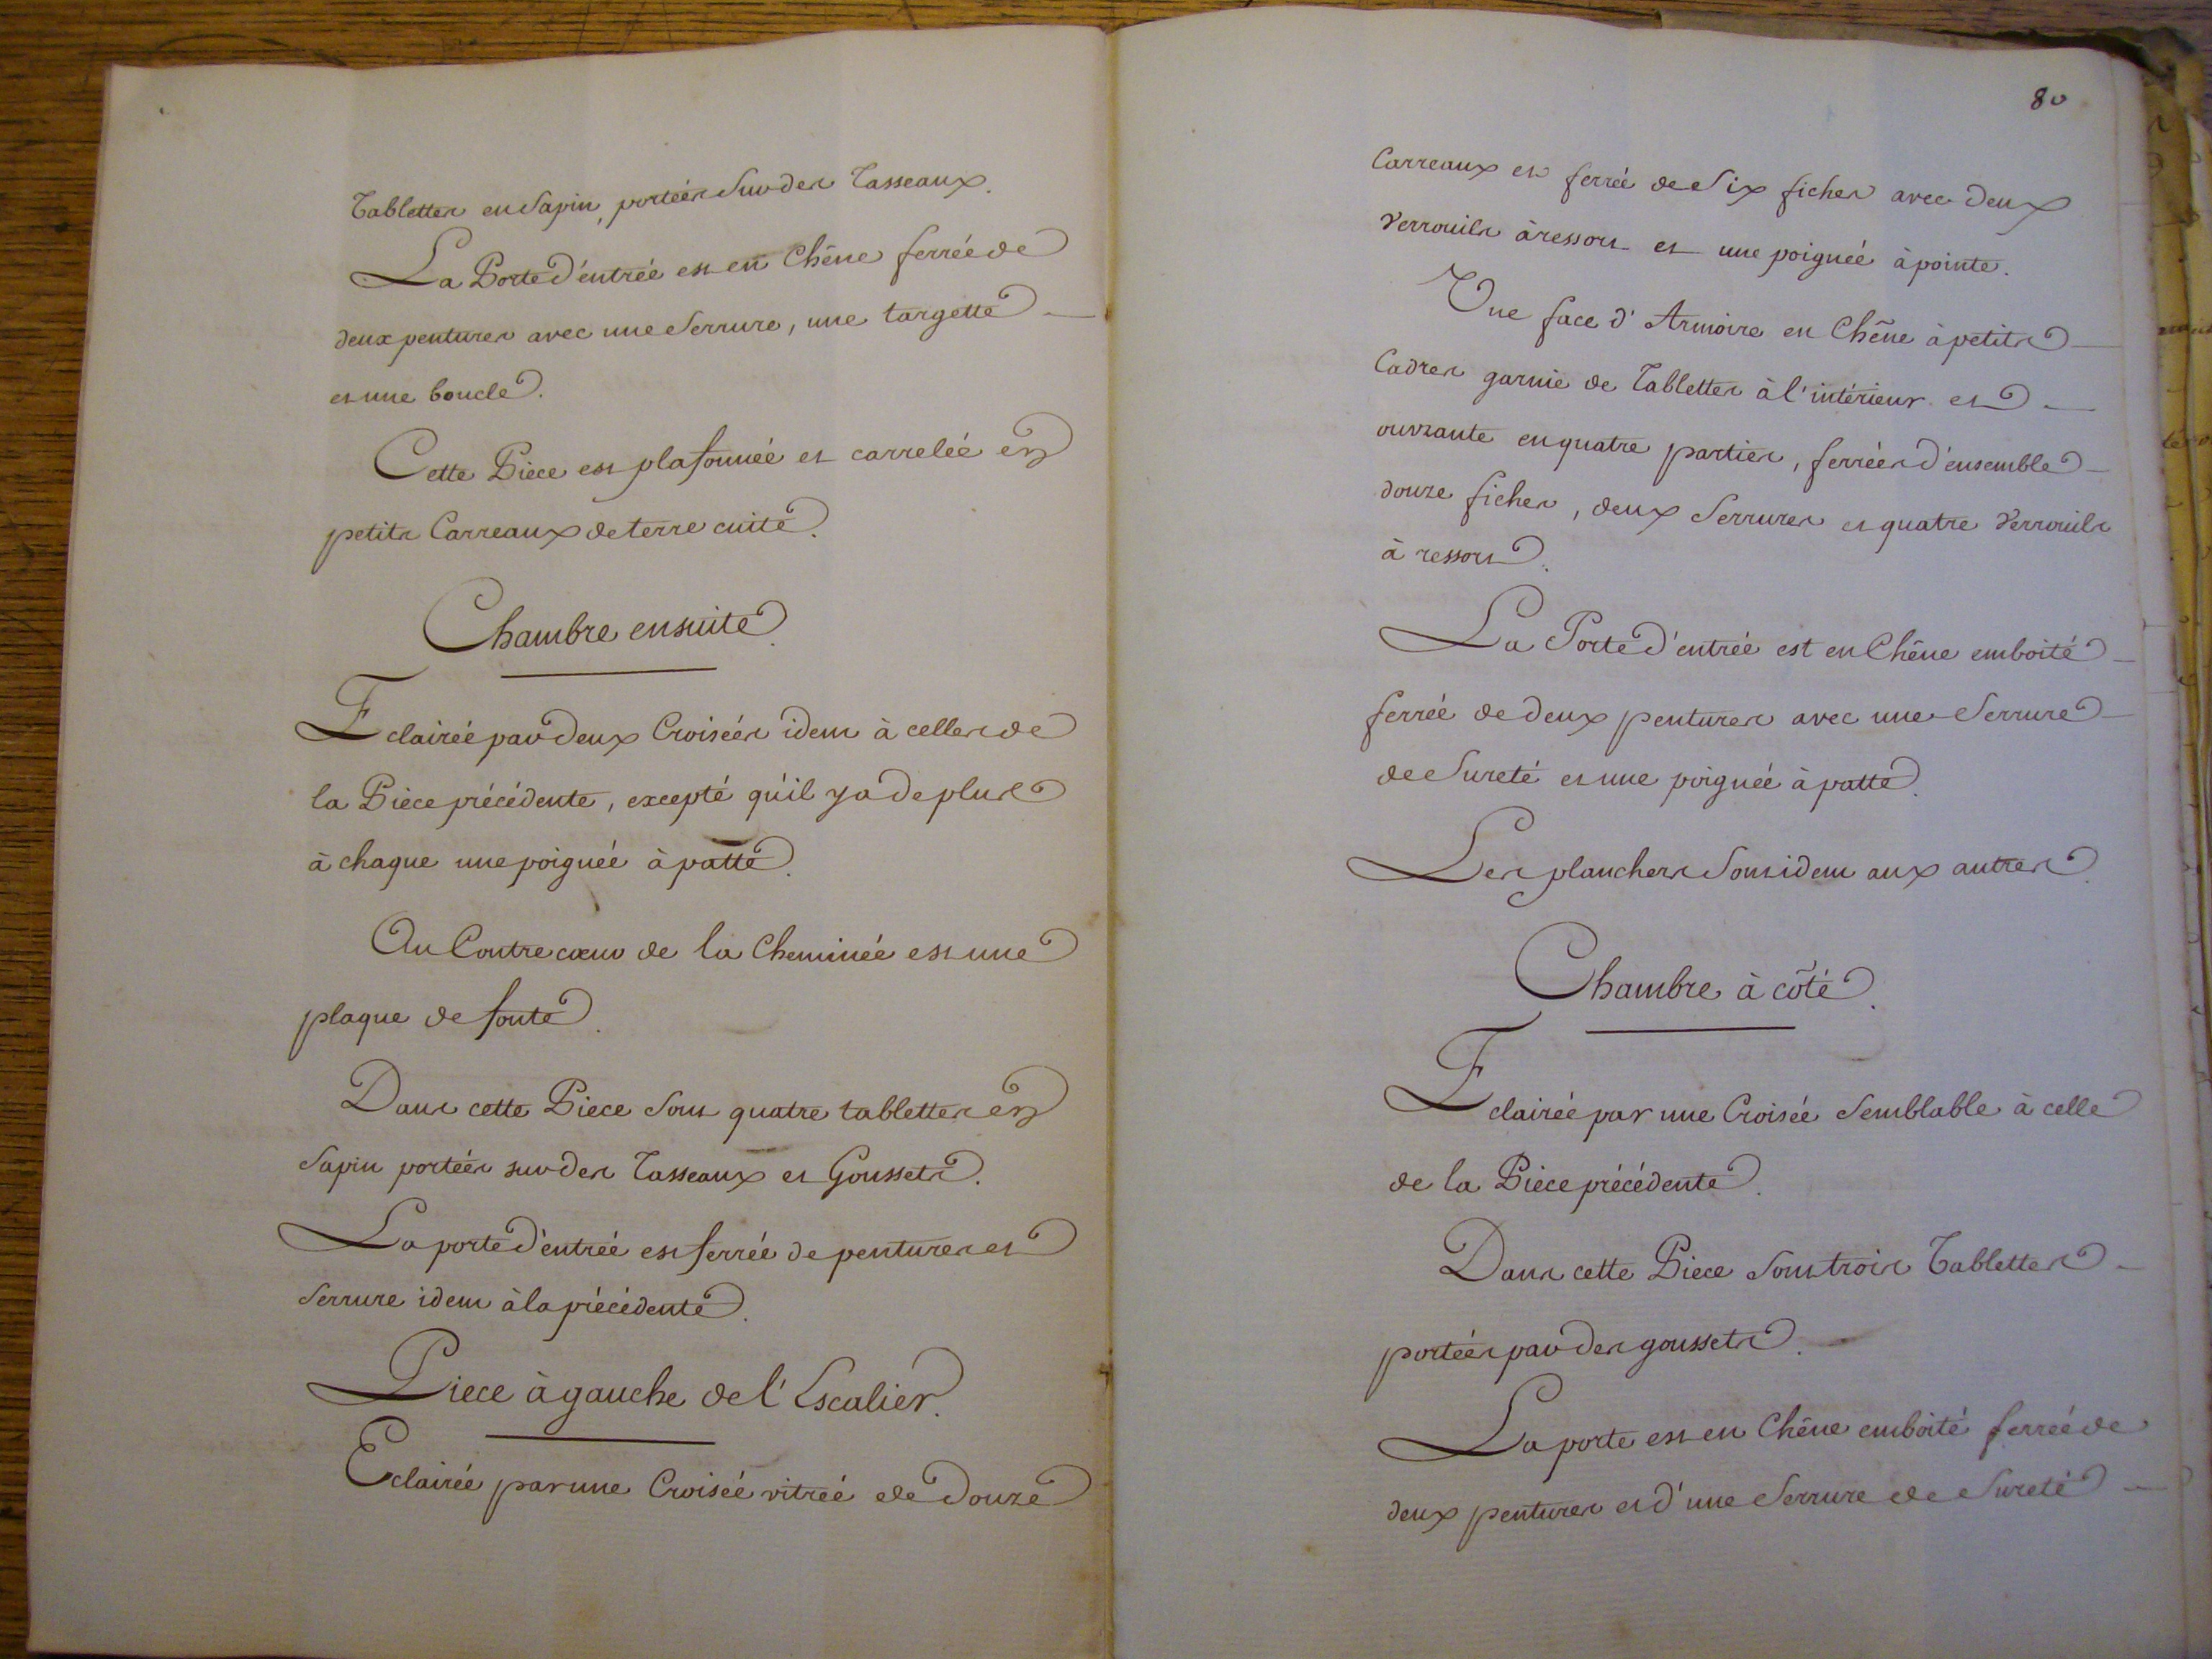 Tablettes en Sapin, portées Sur des Tasseaux.
La Porte d'éntrée est en Chêne ferrée de
deux pentures avec une Serrure, une targette
et une boucle.
Cette Piéce est plafonnée et carrelée en
petits Carreaux de terre cuite.
Chambre ensuite.
Eclairée par deux Croisées idem à celles de
la Piéce précédente, excepté qu'il y a de plus
à chaque une poignée à patte.
Au Contrecœur de la Cheminée est une
plaque de fonte.
Dans cette Piece Sont quatre tablettes en
Sapin portées sur des Tasseaux et Goussets.
La porte d'éntrée est ferrée de pentures et
Serrure idem à la précédente.
Piece à gauche de l'Escalier.
Eclairée par une Croisée vitrée de Douze
80
Carreaux et ferrée de Six fiches avec deux
Verrouils à ressort et une poignée à pointe.
Une face d'Armoire en Chêne à petits
Cadres garnie de Tablettes à l'intérieur et
ouvrante en quatre parties, ferrées d'ensemble
douze fiches, deux Serrures et quatre Verrouils
à ressort.
La Porte d'entrée est en Chêne emboité
ferrée de deux pentures avec une Serrure
de Sureté et une poignée à patte.
Les planchers Sont idem aux autres.
Chambre à côté.
Eclairée par une Croisée Semblable à celle
de la Piece précédente.
Dans cette Piece Sont trois Tablettes
portées par des goussets.
La porte est en Chêne emboité ferrée de
deux pentures et d'une Serrure de Sureté